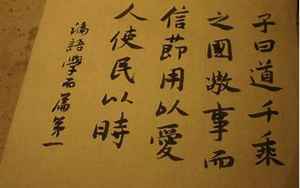 子曰道千乘
之國敬事而
信節用以愛
人使民以時
論語學而篇第一